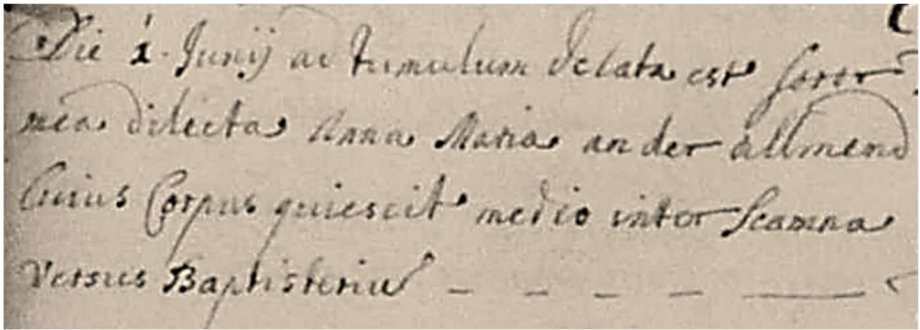 Die 1. Junij ad tumulum delata est soror
mea dilecta Anna Maria an der allmend
Cuius Corpus quiescit medio inter Scamna
versus Baptisteriu